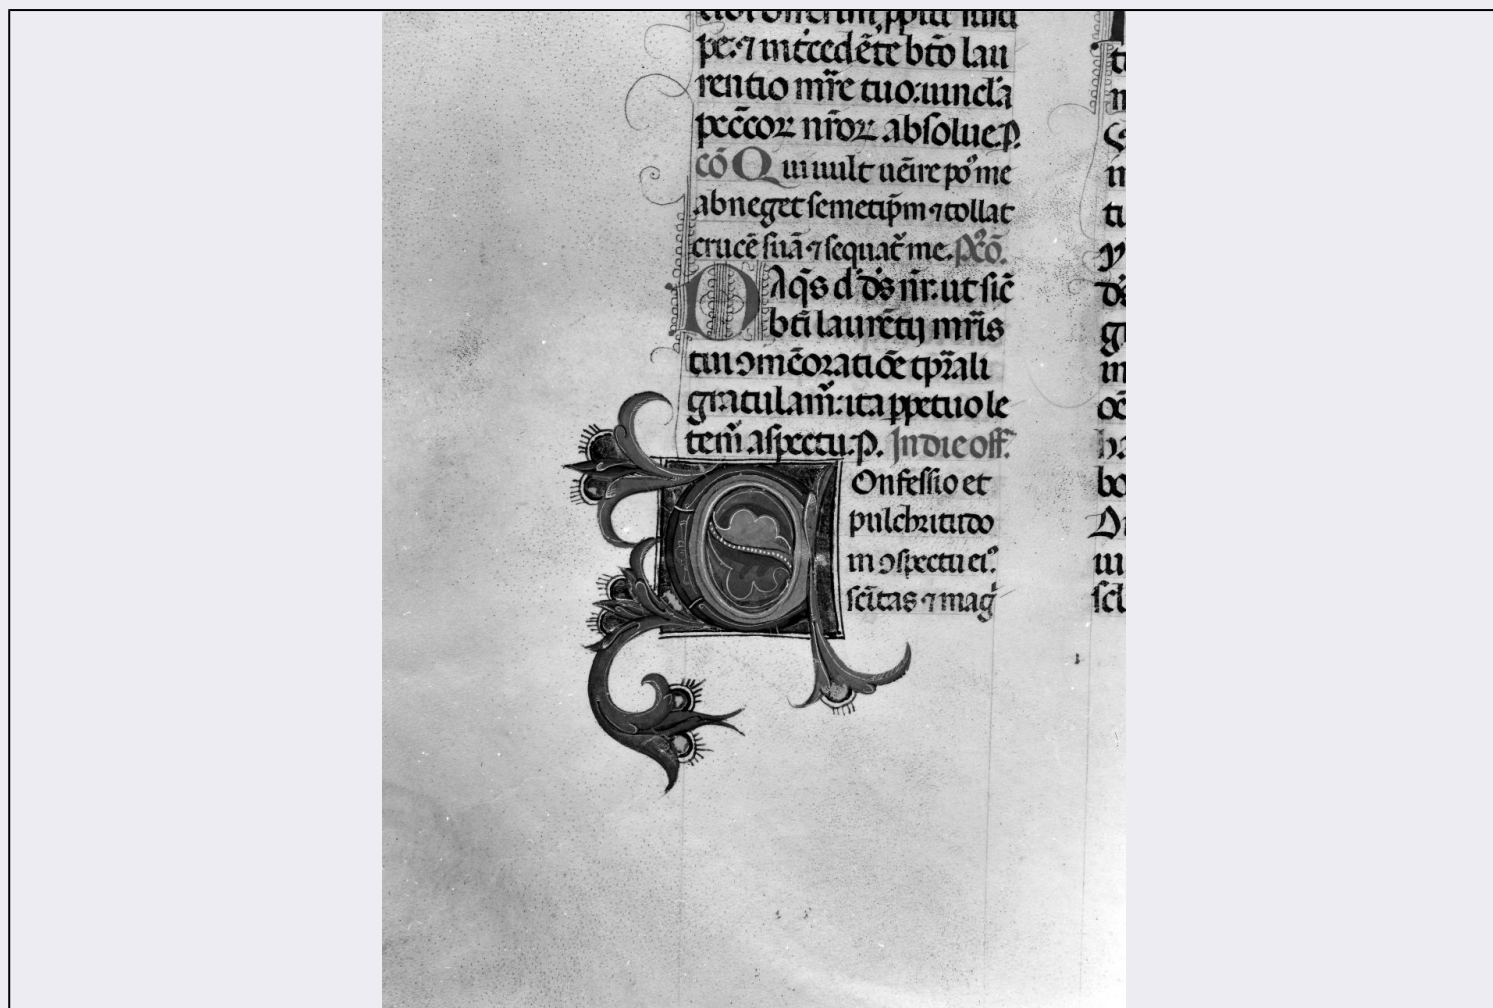 pe: ⁊ int̄cedēte bt̄o lau
rentio mr̄e tuo: uincl̄a
pecc̄coꝝ nr̄oꝝ absolue. P.
cō Qui uult uēire po᷒ me
abneget semetip̄m ⁊ tollat
crucē suā ⁊ sequat᷑ me. P᷒cō.
DA q̄s d̄ d̄s nr̄: ut sic̄
bt̄i laurētij mr̄is
tui ꝯmēoratiōe tp̄rali
gratulam̄: ita ꝑpetuo le
tem̄ aspectu. P. In die off̄.
Confessio et
pulchritudo
in ꝯspectu ei᷒
sc̄itas ⁊ mag